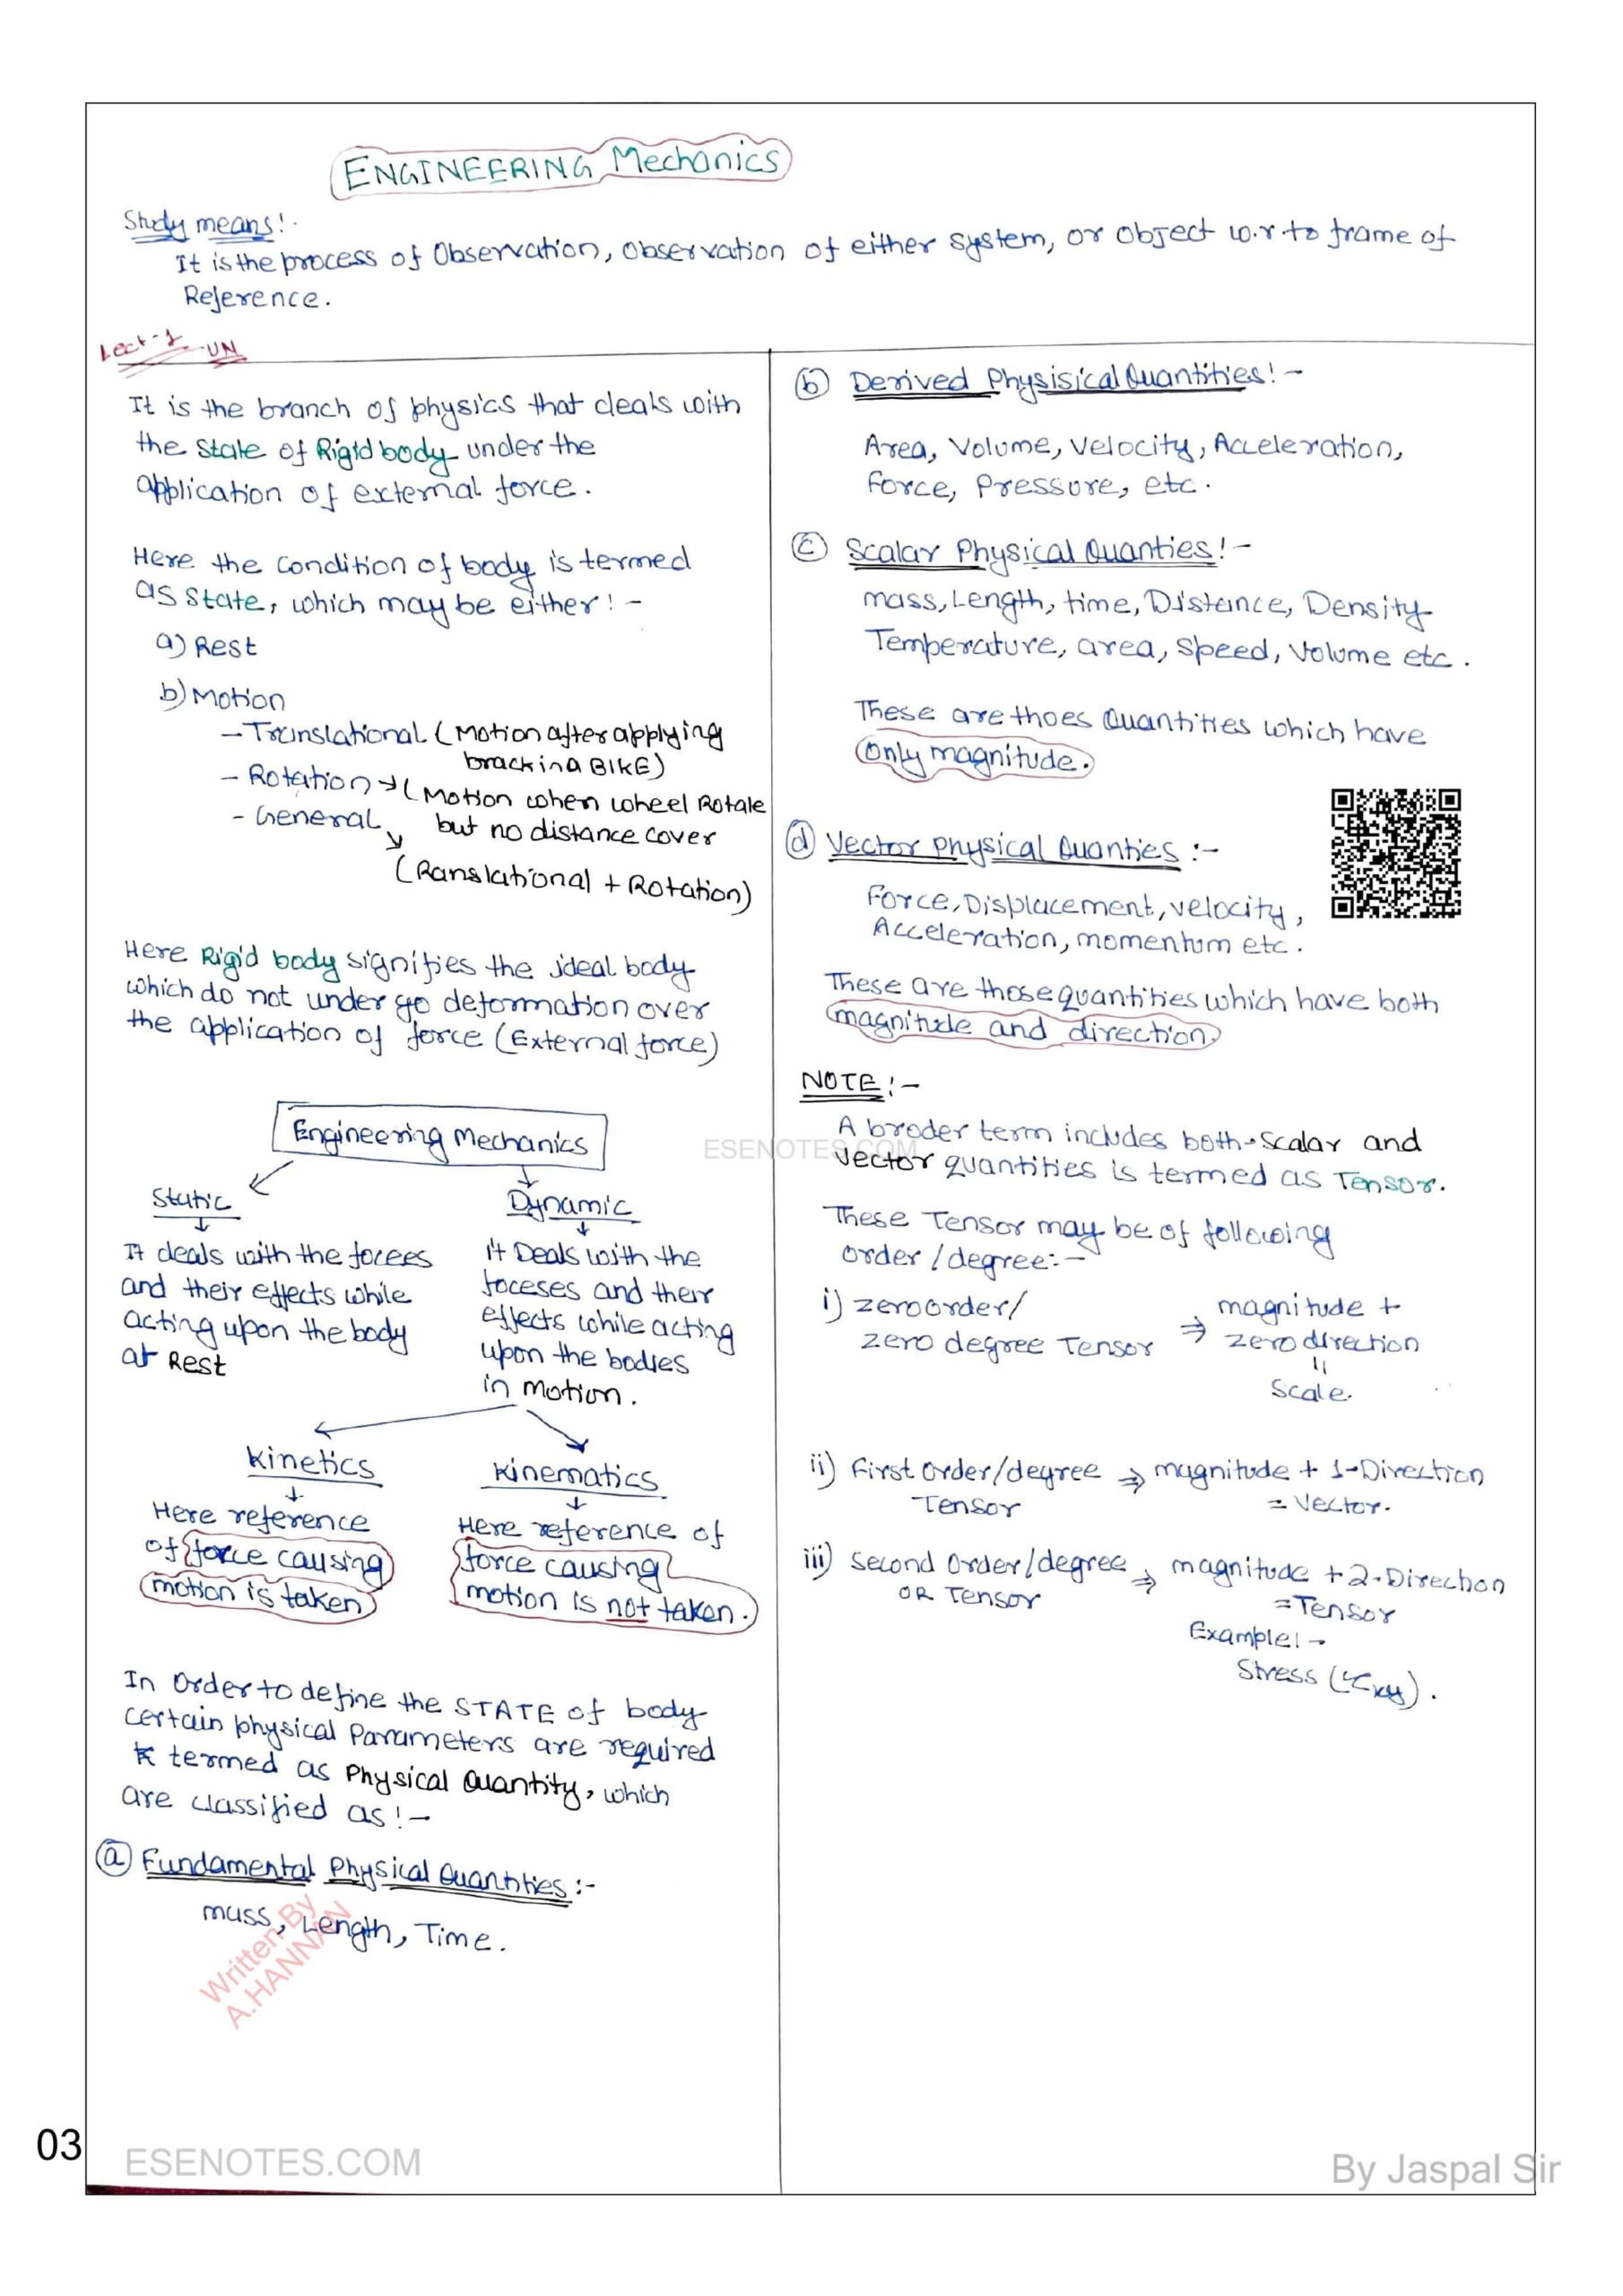 ENGINEERING Mechanics
Study means!-
It is the process of Observation, Observation of either system, or object w.r to frame of
Reference.
Lect-1 UN
It is the branch of physics that deals with
the State of Rigid body under the
application of external force.
Here the Condition of body is termed
as State, which may be either!-
a) Rest
b) Motion
- Translational (Motion after applying
brack in a BIKE)
- Rotation → (Motion when wheel Rotate
but no distance cover
- General
(Ranslational + Rotation)
Here Rigid body signifies the ideal body
which do not under go deformation over
the application of force (External force)
Engineering Mechanics
Static
It deals with the forces
and their effects while
acting upon the body
at Rest
Dynamic
it Deals with the
foceses and their
effects while acting
upon the bodies
in motion.
Kinetics
Here reference
of force causing
motion is taken
Kinematics
Here reference of
force causing
motion is not taken.
In Order to define the STATE of body
certain physical Parameters are required
termed as Physical Quantity, which
are classified as!-
(a) Fundamental Physical Quantities:-
mass, Length, Time.
Written By
A.HANNAN
(b) Derived Physisical Quantities!-
Area, Volume, Velocity, Acceleration,
Force, Pressure, etc.
(c) Scalar Physical Quanties!-
mass, Length, time, Distance, Density
Temperature, area, Speed, Volume etc.
These are thoes Quantities which have
Only magnitude.
(d) Vector Physical Quanties:-
Force, Displacement, velocity,
Acceleration, momentum etc.
These are those quantities which have both
magnitude and direction.
NOTE!-
A broder term includes both Scalar and
Vector quantities is termed as Tensor.
These Tensor may be of following
order/degree:-
i) zero order/
zero degree Tensor ⇒ magnitude +
zero direction
=
Scale.
ii) First Order/degree ⇒ magnitude + 1-Direction
Tensor = Vector.
iii) Second Order/degree ⇒ magnitude + 2-Direction
OR Tensor = Tensor
Example!-
Stress (τxy).
ESENOTES.COM
03
ESENOTES.COM
By Jaspal Sir